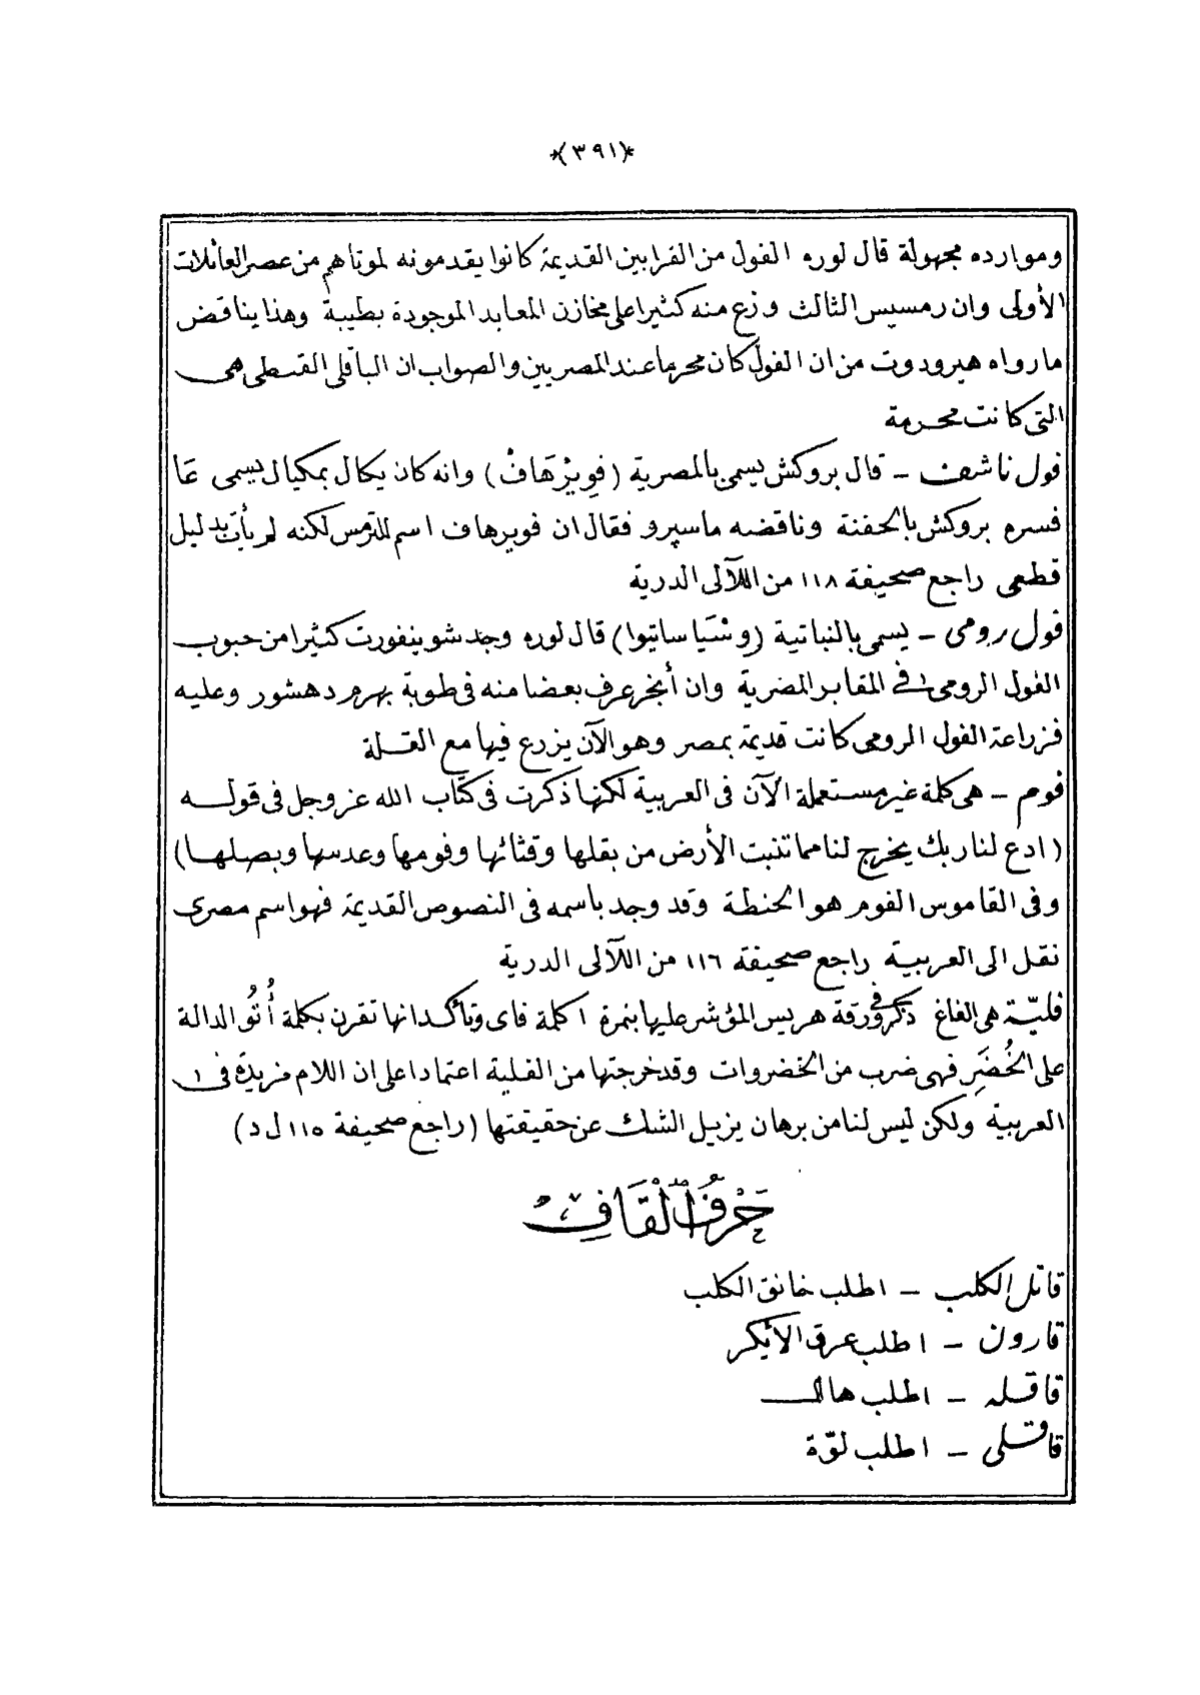 *(٣٩١)*
وموارده مجهولة قال لوره الفول من القرابين القديمة كانوا يقدمونه لموتاهم من عصر العائلات
الأولى وان رمسيس الثالث وزع منه كثيرا على مخازن المعابد الموجودة بطيبة وهذا يناقض
مارواه هيرودوت من ان الفول كان محرما عند المصريين والصواب ان الباقلى القبطى هى
التى كانت محرمة
فول ناشف – قال بروكش يسمى بالمصرية (فوِيرْهَافْ) وانه كان يكال بمكيال يسمى عَا
فسره بروكش بالحفنة وناقضه ماسپرو فقال ان فويرهاف اسم للترمس لكنه لم يأت بدليل
قطعى راجع صحيفة ١١٨ من اللآلى الدرية
فول رومى – يسمى بالنباتية (وسْيَا ساتيوا) قال لوره وجد شوينفورت كثيرا من حبوب
الفول الرومى فى المقابر المصرية وان أنجر عرف بعضا منه فى طوبة بهرم دهشور وعليه
فزراعة الفول الرومى كانت قديمة بمصر وهو الآن يزرع فيها مع القلة
فوم – هى كلمة غير مستعملة الآن فى العربية لكنها ذكرت فى كتاب الله عز وجل فى قوله
(ادع لنا ربك يخرج لنا مما تنبت الأرض من بقلها وقثائها وفومها وعدسها وبصلها)
وفى القاموس الفوم هو الحنطة وقد وجد باسمه فى النصوص القديمة فهو اسم مصرى
نقل الى العربية راجع صحيفة ١١٦ من اللآلى الدرية
فليّة هى الفاغ ذكر فى ورقة هريس المؤشر عليها بنمرة ١ كلمة فاى وتأكد انها تقرن بكلمة أُتُو الدالة
على الخُضَرِ فهى ضرب من الخضروات وقد خرجتها من الفلية اعتمادا على ان اللام مزيدة فى
العربية ولكن ليس لنا من برهان يزيل الشك عن حقيقتها (راجع صحيفة ١١٥ ل د)
حَرْفُ الْقَافِ
قاتل الكلب – اطلب خانق الكلب
قارون – اطلب عرق الأيكر
قاقله – اطلب هال
قاقلى – اطلب لوّة